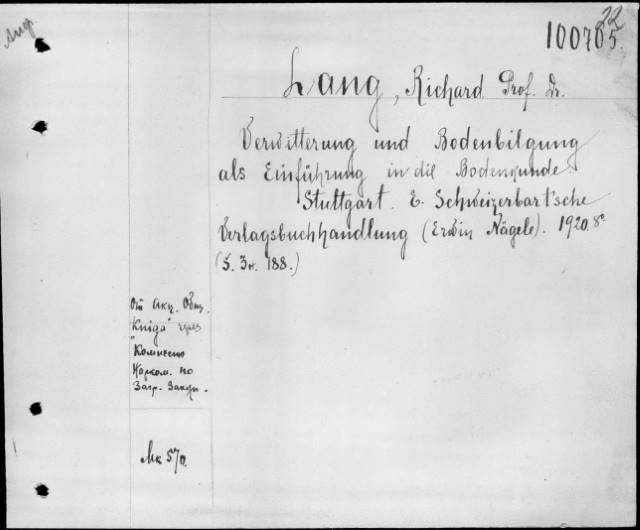 22
100705.
Lang, Richard Prof. Dr.
Verwitterung und Bodenbilgung
als Einführung in die Bodenkunde.
Stuttgart. E. Schweizerbart'sche
Verlagsbuchhandlung (Erwin Nägele). 1920. 8°
(S. 188.)
От Акц. Общ.
"Kniga" через
"Комитет
Нарком. по
Загр. Закуп.
Мк 570.